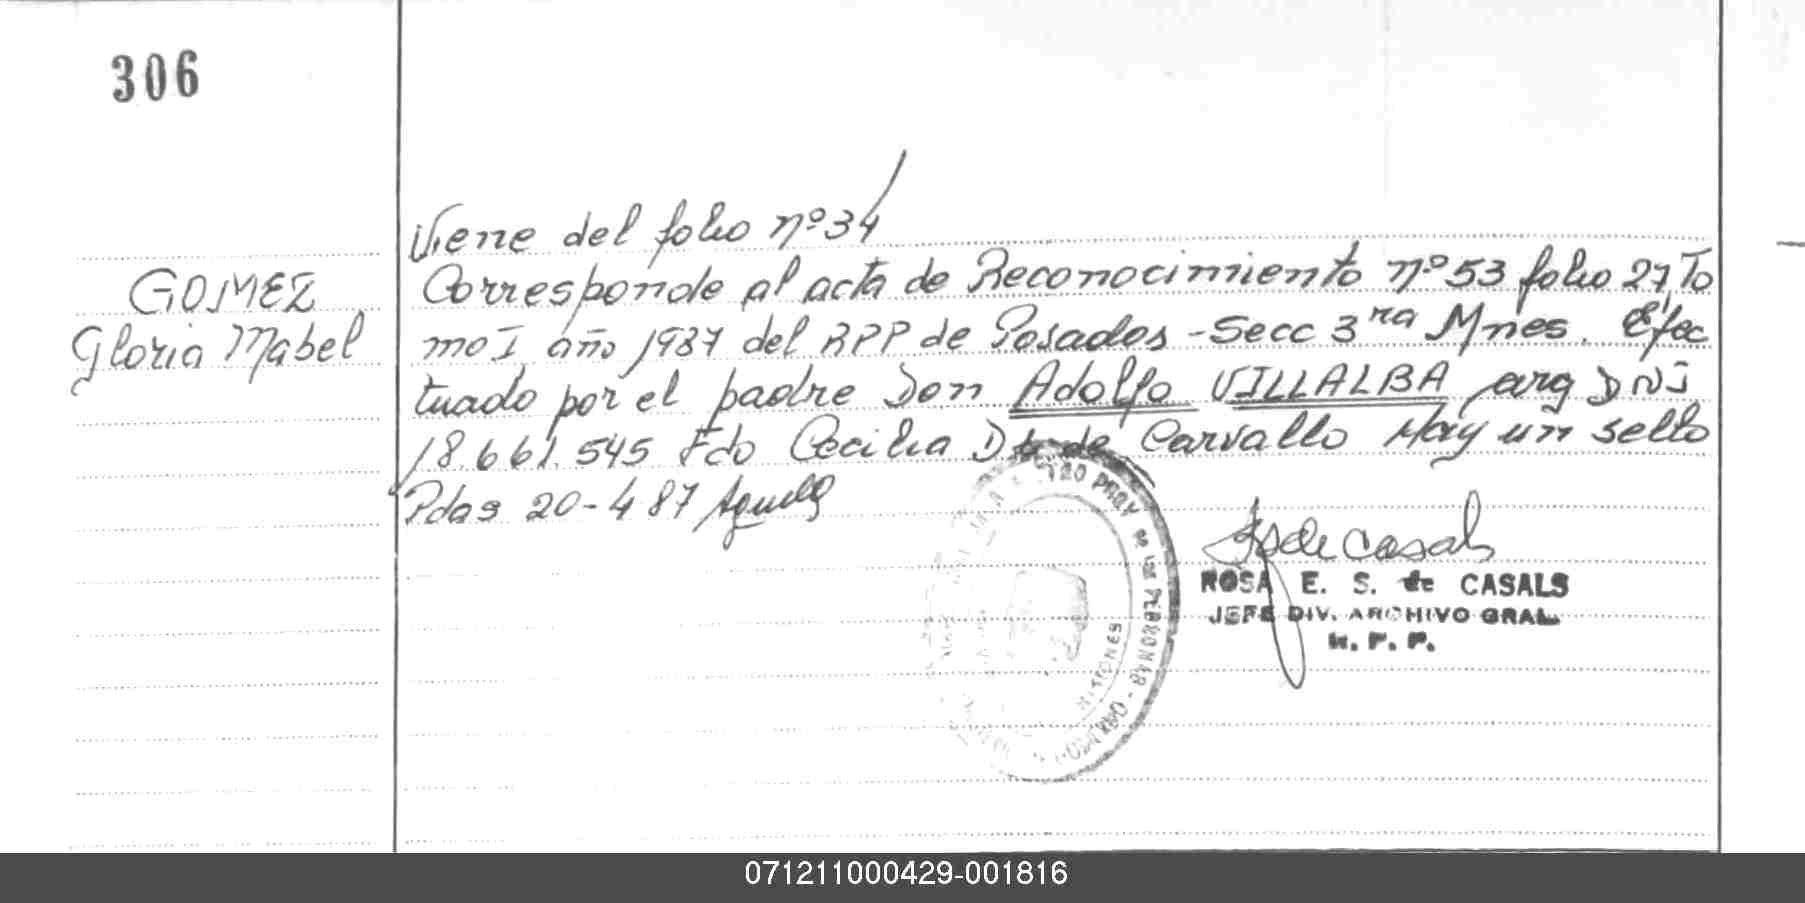 306
Viene del folio nº 34
GOMEZ
Gloria Mabel
Corresponde al acta de Reconocimiento nº 53 folio 27 To
mo I año 1987 del RPP de Posadas - Secc 3ra Mnes. Efec
tuado por el padre Don Adolfo VILLALBA arg DNI
18.661.545 Fdo Cecilia D de Carvallo Hay un sello
Pdas 20-4 87
ROSA E. S. de CASALS
JEFE DIV. ARCHIVO GRAL
R. P. P.
DE LAS PERSONAS
MISIONES
071211000429-001816